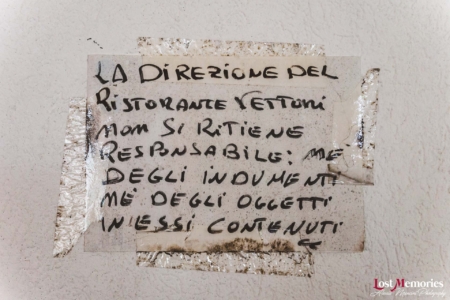 LA DIREZIONE DEL
RISTORANTE VETTORI
NON SI RITIENE
RESPONSABILE: NE'
DEGLI INDUMENTI
NE' DEGLI OGGETTI
IN ESSI CONTENUTI
Lost Memories